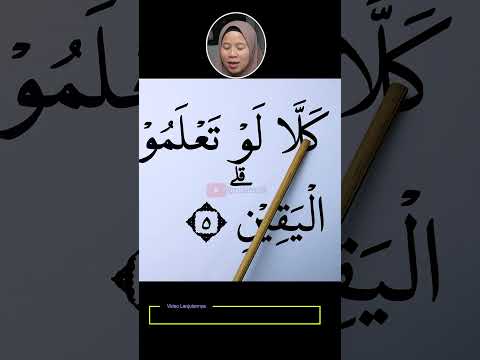 كَلَّا لَوْ تَعْلَمُوْ
قلے
الْيَقِيْنِ ۝٥
Video Lanjutannya